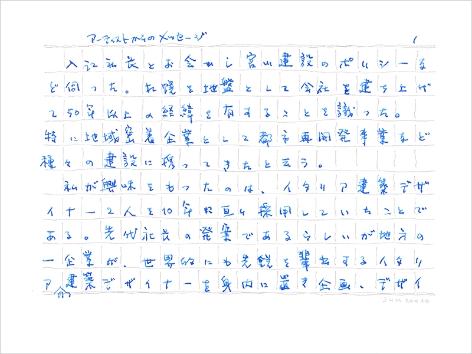 アーティストからのメッセージ
1
入江社長とお会いし宮川建設のポリシーな
ど伺った。お膝を地盤として会社を建ち上げ
て50年以上の経緯を有することを識った。
特に地域密着企業として都市再開発事業など
種々の建設に携ってきたと云う。
私が興味をもったのは、イタリア建築デザ
イナー2人を10年以亘り採用していたことで
ある。先代社長の発案であるらしいが地方の
一企業が、世界的にも先鋭を輩出するイタリ
ア建築デザイナーを身内に置き企画、デザイ